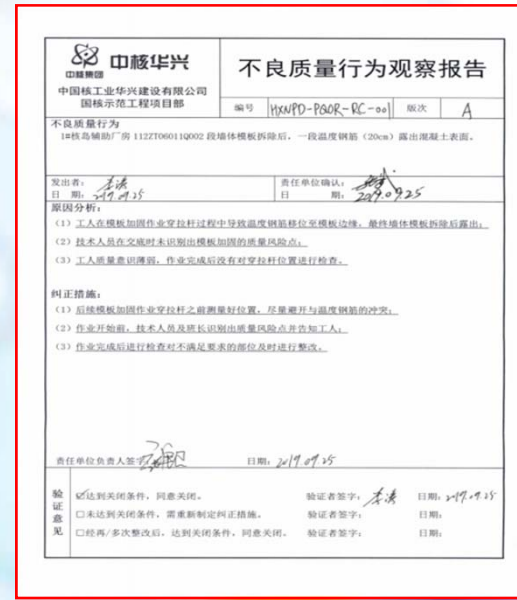 中核集团
中核华兴
中国核工业华兴建设有限公司
国核示范工程项目部
不良质量行为观察报告
编号 HXNPD-PQOR-RC-001 版次 A
不良质量行为
1#核岛辅助厂房 112ZT06011Q002 段墙体模板拆除后，一段温度钢筋（20cm）露出混凝土表面。
发出者：
日 期：2019.09.25
责任单位确认：
日 期：2019.09.25
原因分析：
（1）工人在模板加固作业穿拉杆过程中导致温度钢筋移位至模板边缘，最终墙体模板拆除后露出；
（2）技术人员在交底时未识别出模板加固的质量风险点；
（3）工人质量意识薄弱，作业完成后没有对穿拉杆位置进行检查。
纠正措施：
（1）后续模板加固作业穿拉杆之前测量好位置，尽量避开与温度钢筋的冲突；
（2）作业开始前，技术人员及班长识别出质量风险点并告知工人；
（3）作业完成后进行检查对不满足要求的部位及时进行整改。
责任单位负责人签字： 日期：2019.09.25
验证意见
☑达到关闭条件，同意关闭。 验证者签字： 日期：2019.09.25
□未达到关闭条件，需重新制定纠正措施。 验证者签字： 日期：
□经再/多次整改后，达到关闭条件，同意关闭。 验证者签字： 日期：